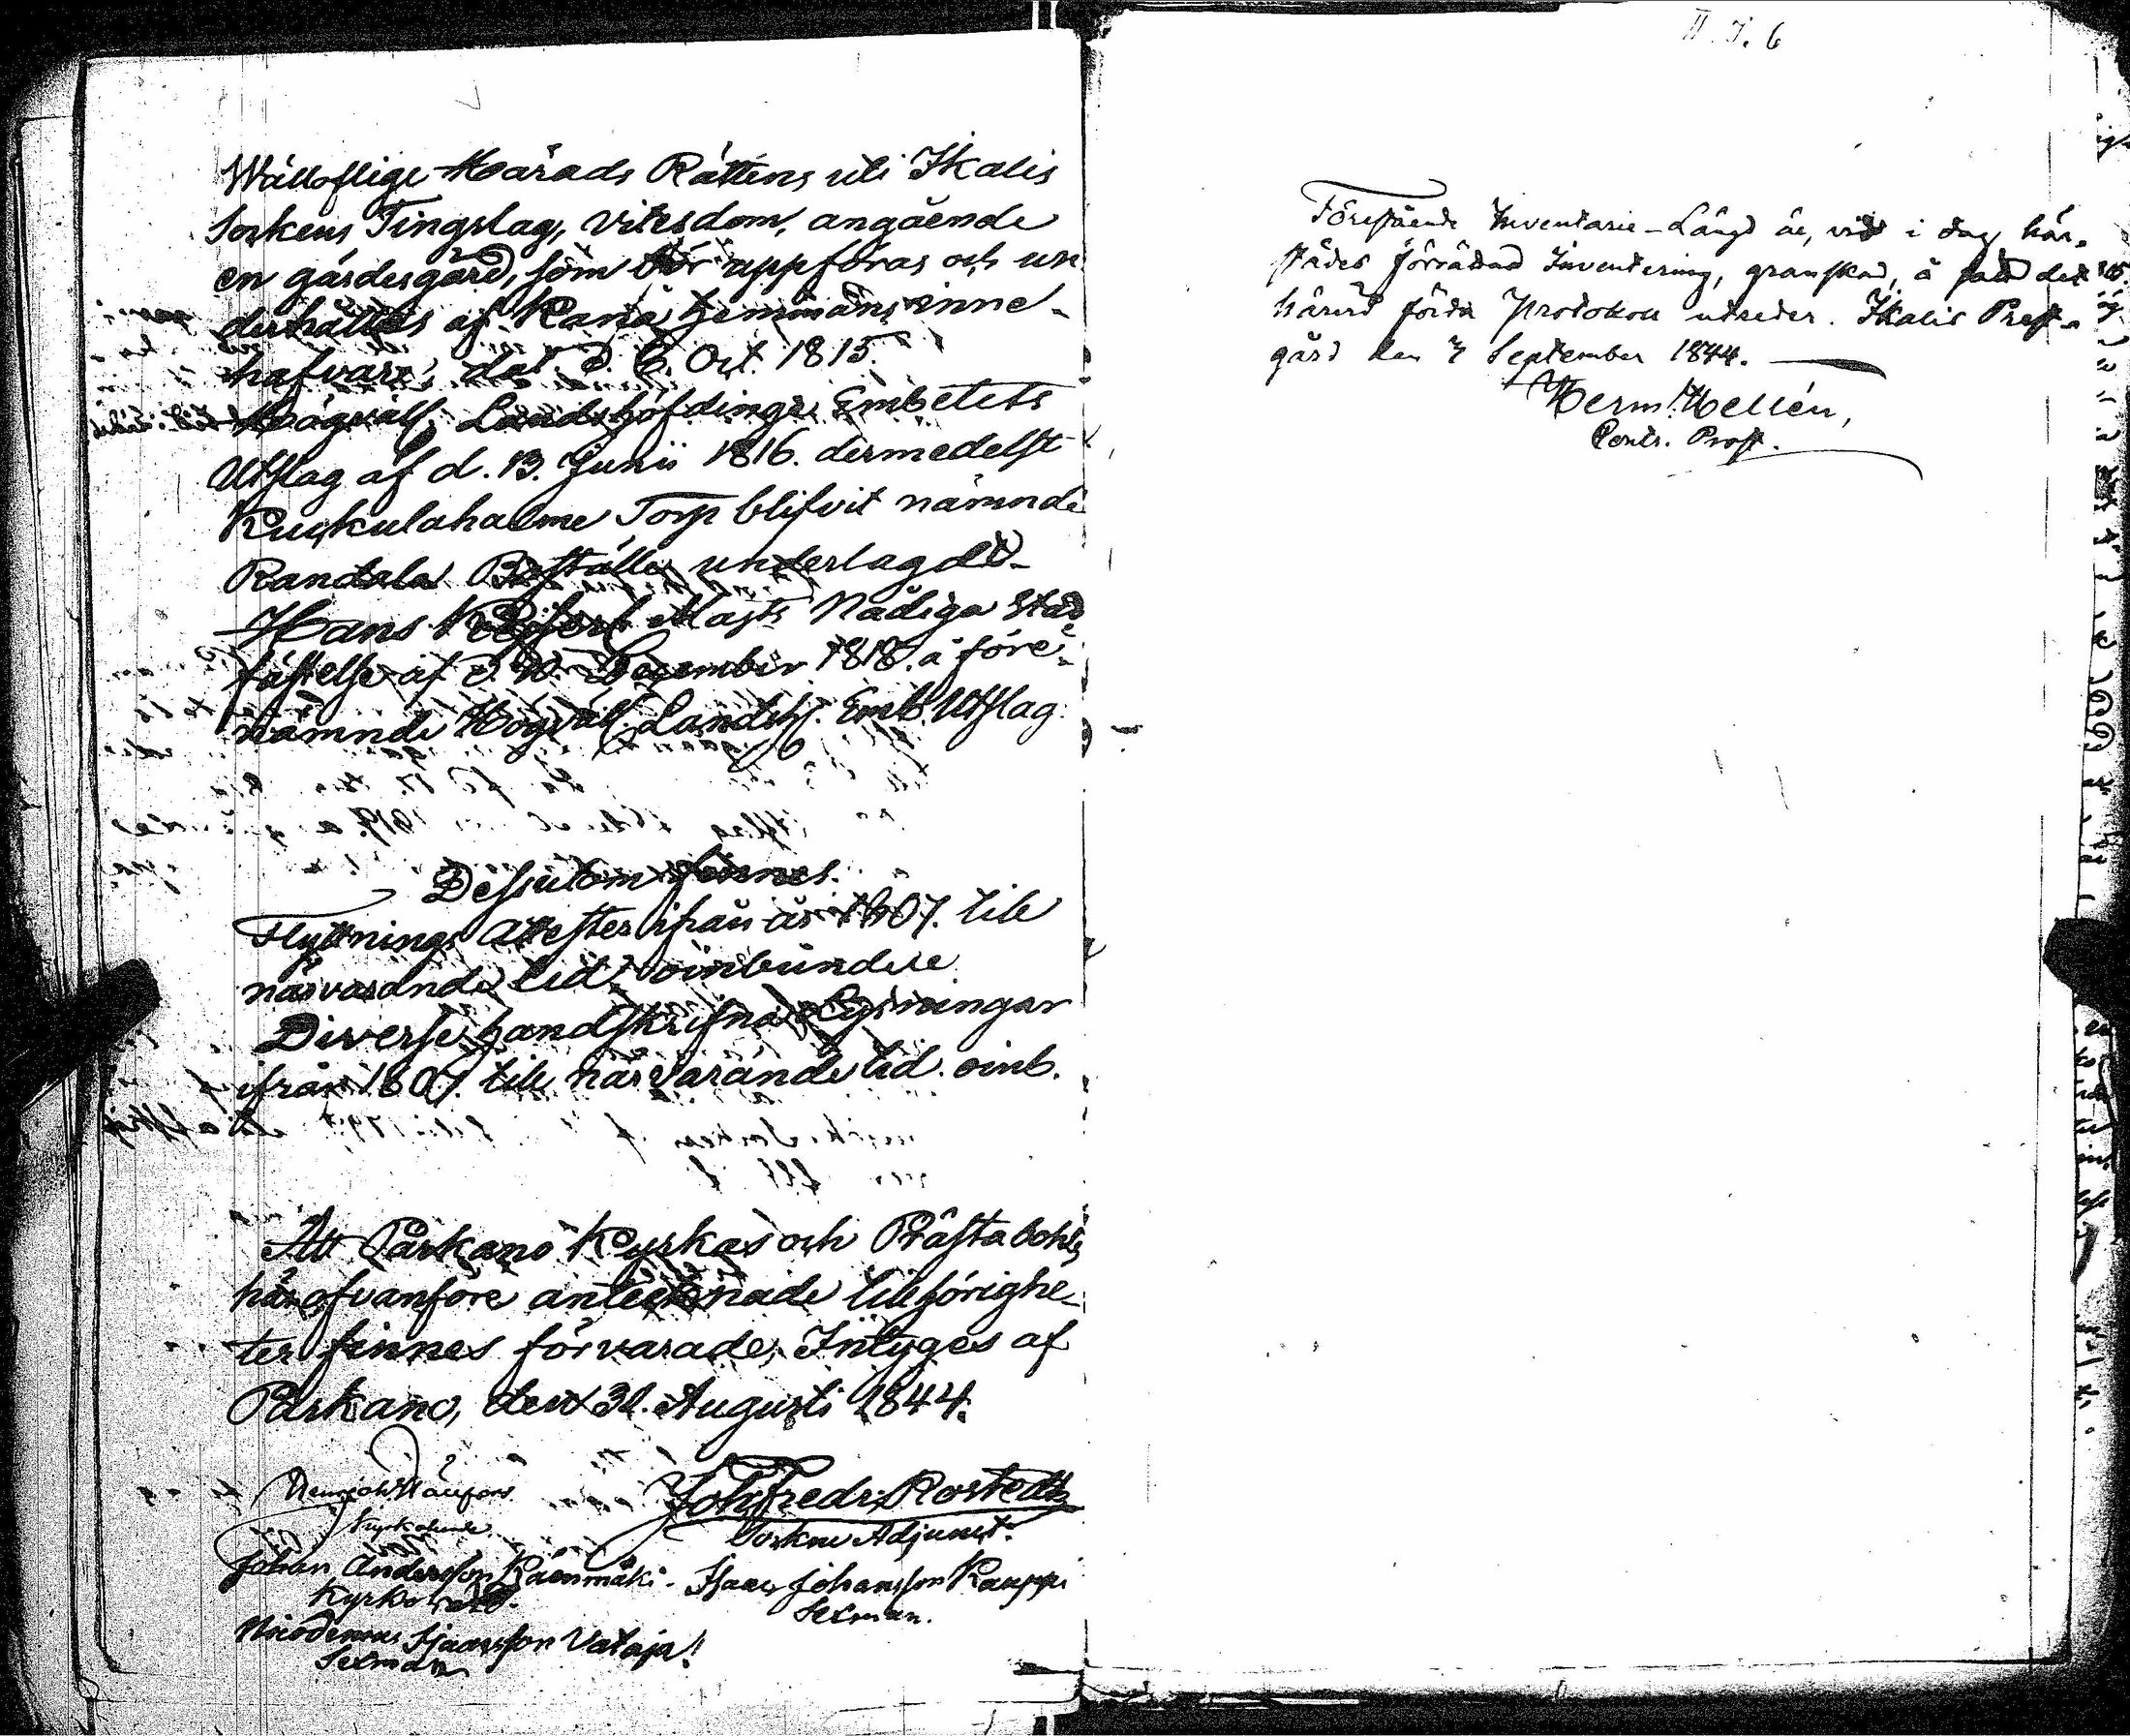 Wälloflige Härads Rättens uti Ikalis
Sockens Tingslag, Vitesdom, angående
en gärdesgård, som bör uppföras och un-
derhållas af Kana hemmans inne-
hafvare, dat. d. 6. Oct. 1815.
Högväll. Landshöfdinge Embetets
Utslag af d. 13. Junii 1816. dermedelst
Kuckulahalme Torp blifvit nämnde
Randala Boställe underlagdt.
Hans Kejserl. Majts Nådiga Stad-
fästelse af d. December 1818. å före-
nämnde Högväll. Landsh. Emb. Utslag.
Dessutom finnes.
Flyttnings Attester ifrån år 1807. till
närvarande tid, oinbundne
Diverse handskrifna Lysningar
ifrån 1807. till närvarande tid. oinb.
Att Parkano Kyrkas och Prästabohls
härofvanföre antecknade tillhörighe-
ter finnes förvarade, Intyges af
Parkano, den 31. Augusti 1844.
Joh. Fredr. Rostedt
Sockne Adjunct.
Johan Andersson Käenmäki. Isaac Johansson Kauppi
Kyrkovärd. Sexman.
Nicodemus Isaacsson Vataja!
Sexman
II. I. 6
Förestående Inventarie-Längd är, vid i dag här-
städes förrättad Inventering, granskad, å satt det
härvid förda Protokoll utreder. Ikalis Prest-
gård den 7 September 1844.
Herm. Hellén,
Contr. Prost.